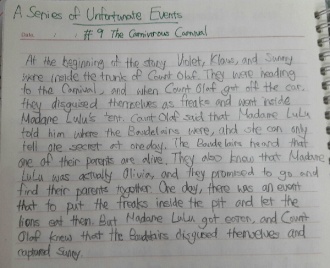 A Series of Unfortunate Events
Date . . # 9 The Carnivorous Carnival
At the beginning of the story Violet, Klaus, and Sunny
were inside the trunk of Count Olaf. They were heading
to the Carnival, and when Count Olaf got off the car.
they disguised themselves as freaks and went inside
Madame Lulu's tent. Count Olaf said that Madame Lulu
told him where the Baudelaires were, and she can only
tell one secret at one day. The Baudelaires heard that
one of their parents are alive. They also knew that Madame
Lulu was actually Olivia, and they promised to go and
find their parents together. One day, there was an event
that to put the freaks inside the pit and let the
lions eat them. But Madame Lulu got eaten, and Count
Olaf knew that the Baudelaires disguised themselves and
captured Sunny.